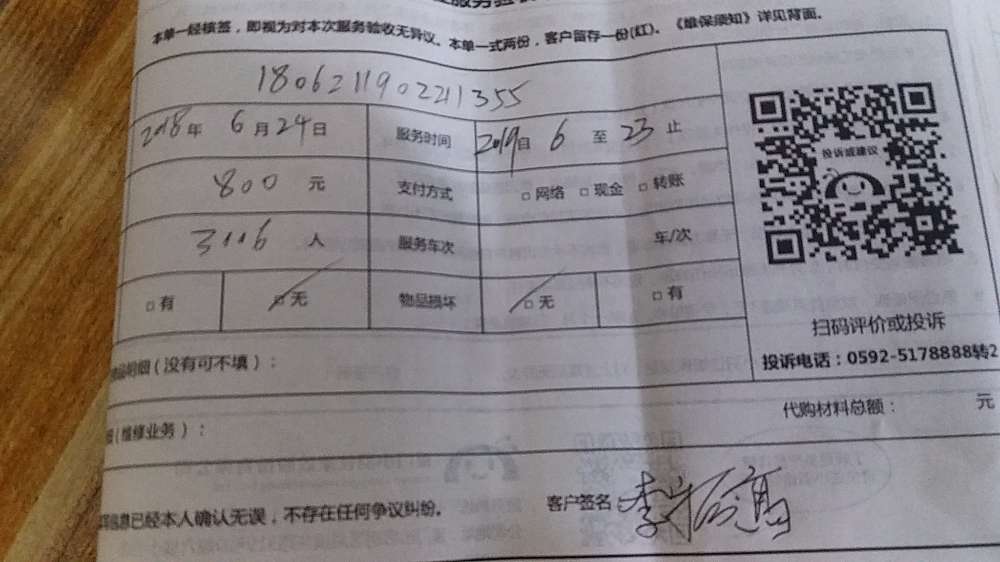 本单一经核签，即视为对本次服务验收无异议。本单一式两份，客户留存一份(红)。《维保须知》详见背面。
180621190221355
2018年 6月24日 服务时间 2019自 6 至 23 止
投诉或建议
800 元 支付方式 □网络 □现金 □转账
人 服务车次 车/次
□有 □无 物品损坏 □无 □有
扫码评价或投诉
投诉电话：0592-5178888转2
明细（没有可不填）：
代购材料总额： 元
（维修业务）：
信息已经本人确认无误，不存在任何争议纠纷。 客户签名